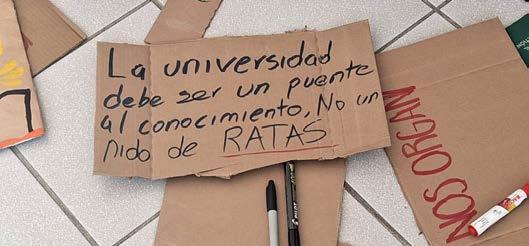 La universidad
debe ser un puente
al conocimiento, No un
nido de RATAS
NOS ORGAN